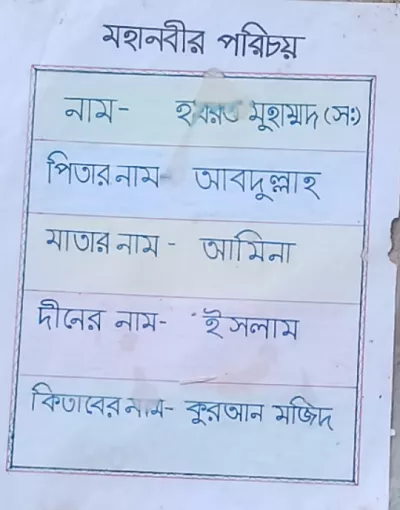 মহানবীর পরিচয়
নাম- হযরত মুহাম্মাদ (সঃ)
পিতার নাম- আবদুল্লাহ
মাতার নাম - আমিনা
দীনের নাম- ইসলাম
কিতাবের নাম- কুরআন মজিদ